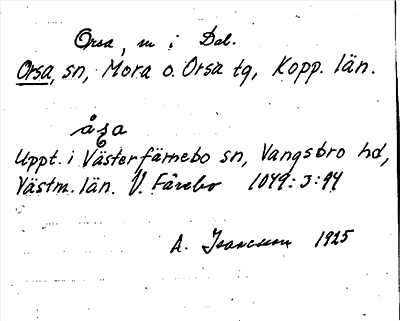 Orsa, sn i Dal.
Orsa, sn, Mora o. Orsa tg, Kopp. län.
åsa
Uppt. i Västerfärnebo sn, Vangsbro hd,
Västm. län. V. Färebo 1049:3:94
A. Isaacsson 1925